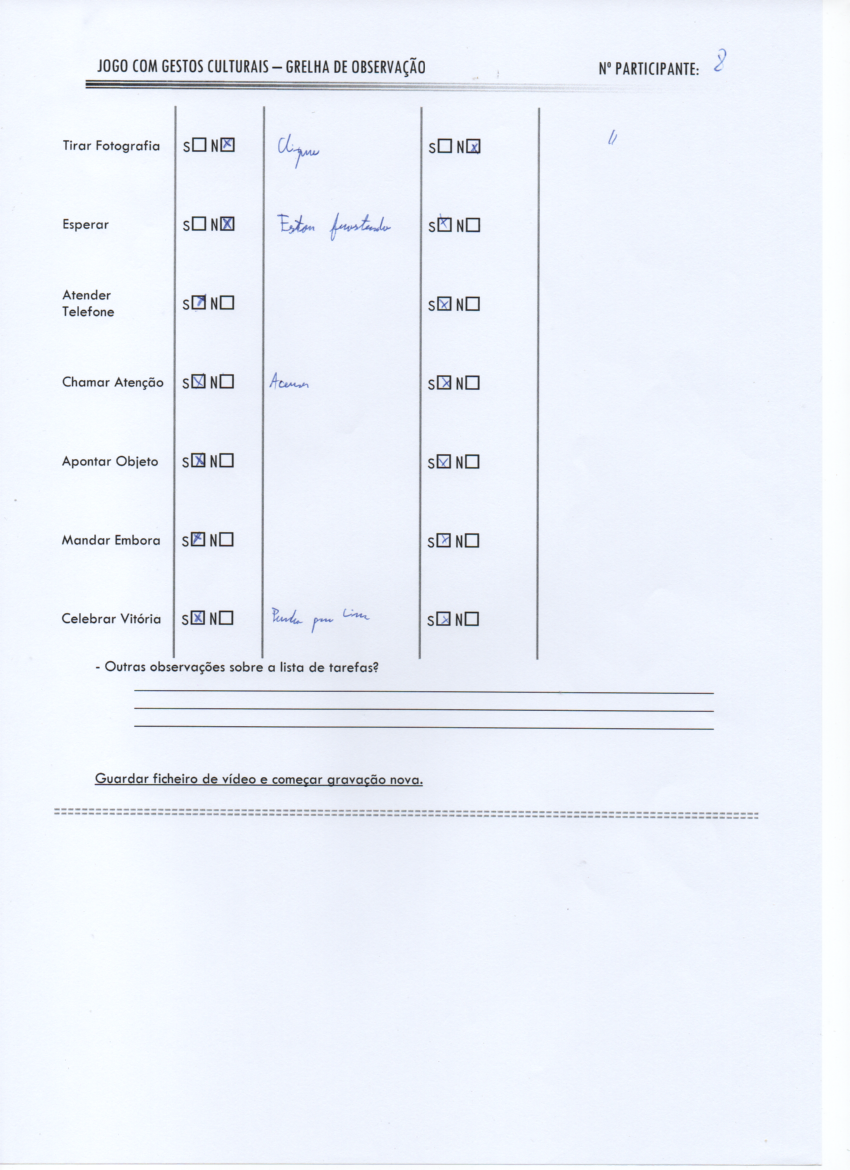 JOGO COM GESTOS CULTURAIS – GRELHA DE OBSERVAÇÃO Nº PARTICIPANTE: 8
Tirar Fotografia S N Clique S N "
Esperar S N Estou S N
Atender
Telefone S N S N
Chamar Atenção S N Acenar S N
Apontar Objeto S N S N
Mandar Embora S N S N
Celebrar Vitória S N para cima S N
- Outras observações sobre a lista de tarefas?
Guardar ficheiro de vídeo e começar gravação nova.